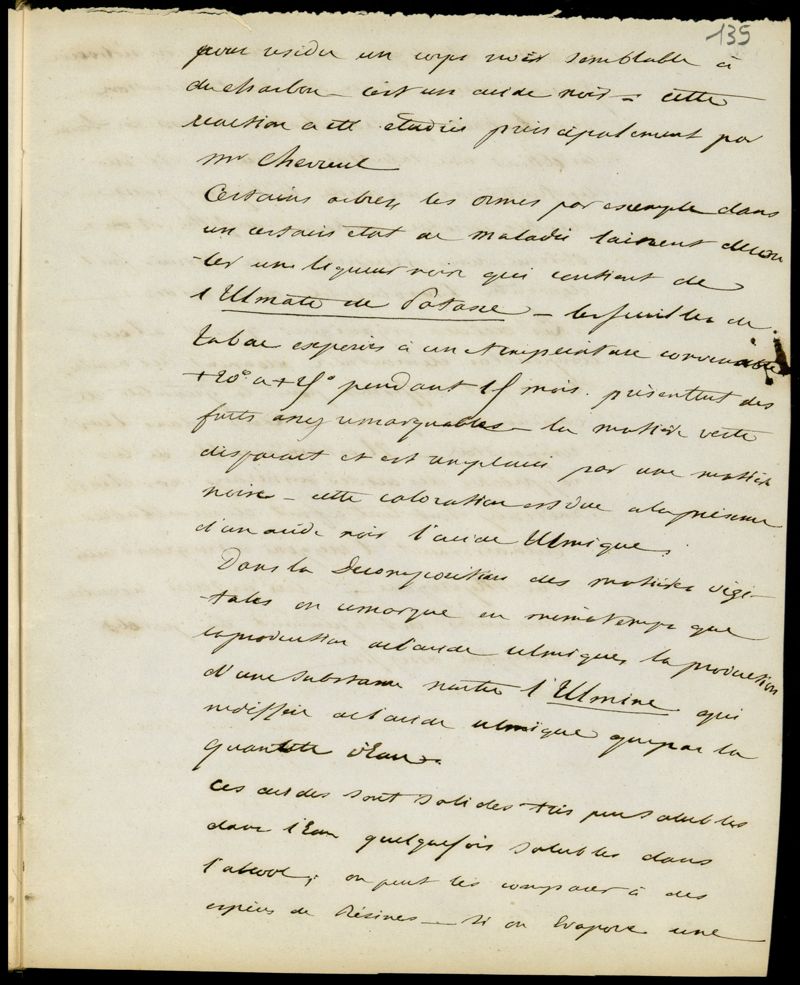 135
pour residu un corps noir semblable à
du charbon – c'est un acide noir – cette
reaction a été étudiée principalement par
mr Chevreul
Certains arbres, les ormes par exemple dans
un certain etat de maladie laissent decou
-ler une liqueur noire qui contient de
l'Ulmate de Potasse – les feuilles de
tabac exposées à une température convenable
+20° a +25° pendant 15 mois. présentent des
faits assez remarquables – la matière verte
disparait et est remplacée par une matière
noire – cette coloration est due a la présence
d'un acide noir l'acide Ulmique.
Dans la Decomposition des matières végé-
-tales on remarque en même temps que
la production de l'acide ulmique, la production
d'une substance neutre l'Ulmine qui
ne diffère de l'acide ulmique que par la
quantité d'Eau.
Ces acides sont solides très peu solubles
dans l'Eau quelquefois solubles dans
l'alcool; on peut les comparer à des
espèces de Résines – si on Evapore une